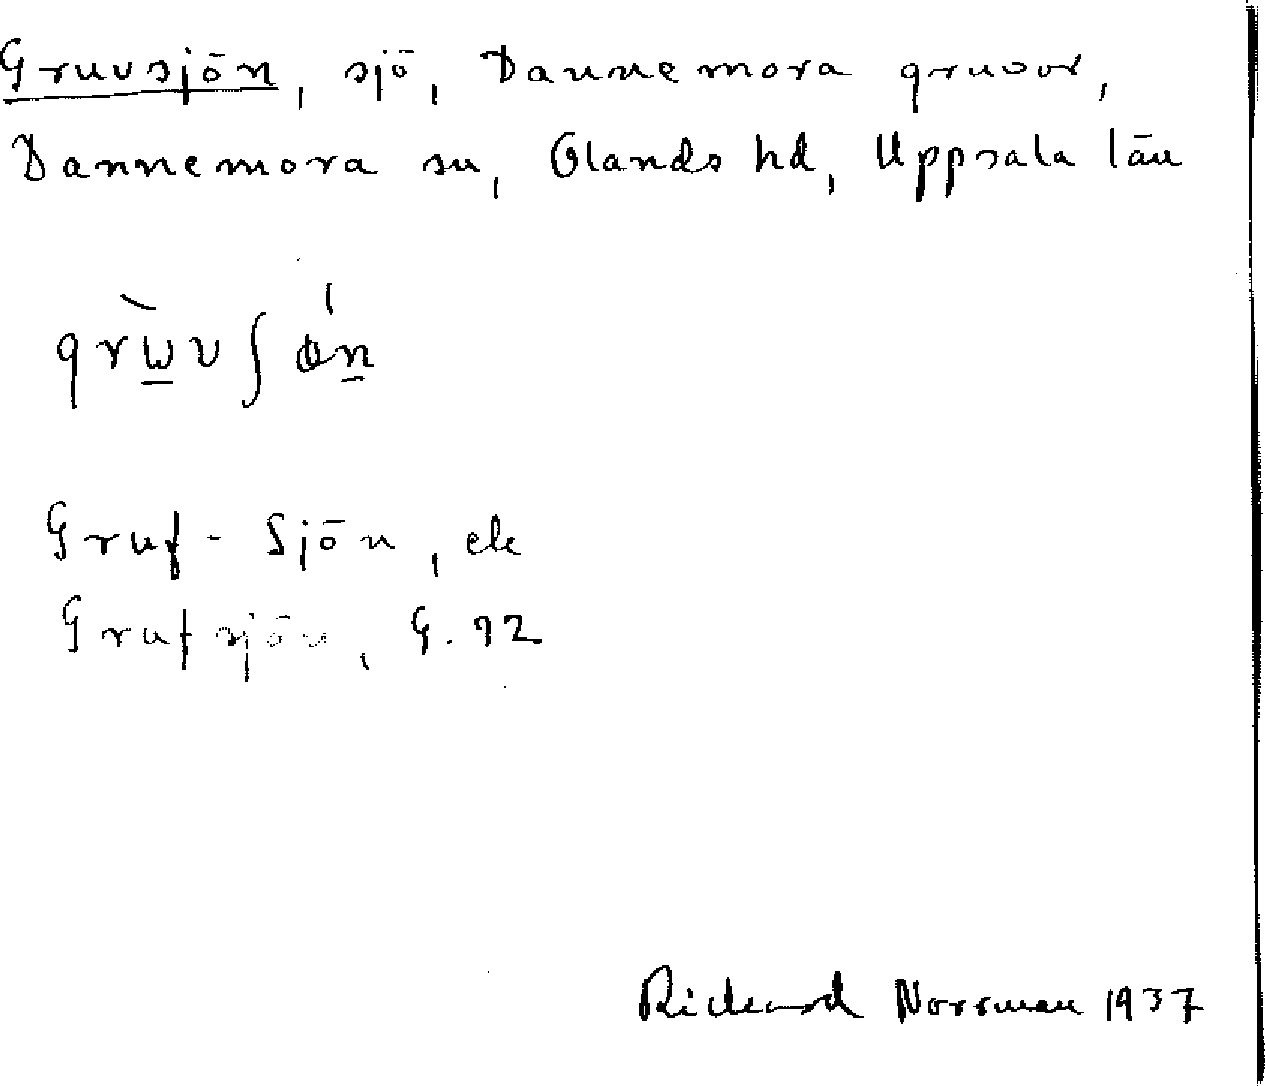 Gruvsjön, sjö, Dannemora gruvor,
Dannemora sn, Olands hd, Uppsala län
grùvʃǿn
Gruf-Sjön, ek
Grufsjön, G. 92
Richard Norrman 1937